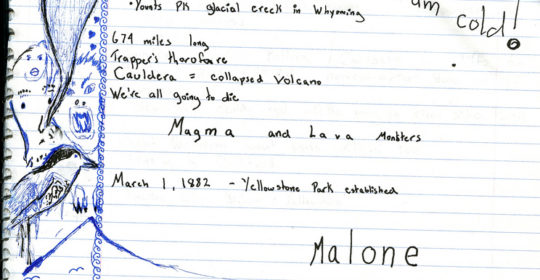 • Younts PK glacial creek in Whyoming
am
cold!
674 miles long
Trapper's thorofare
Cauldera = collapsed volcano
We're all going to die
Magma and Lava Monsters
March 1, 1882 - Yellowstone Park established
Malone